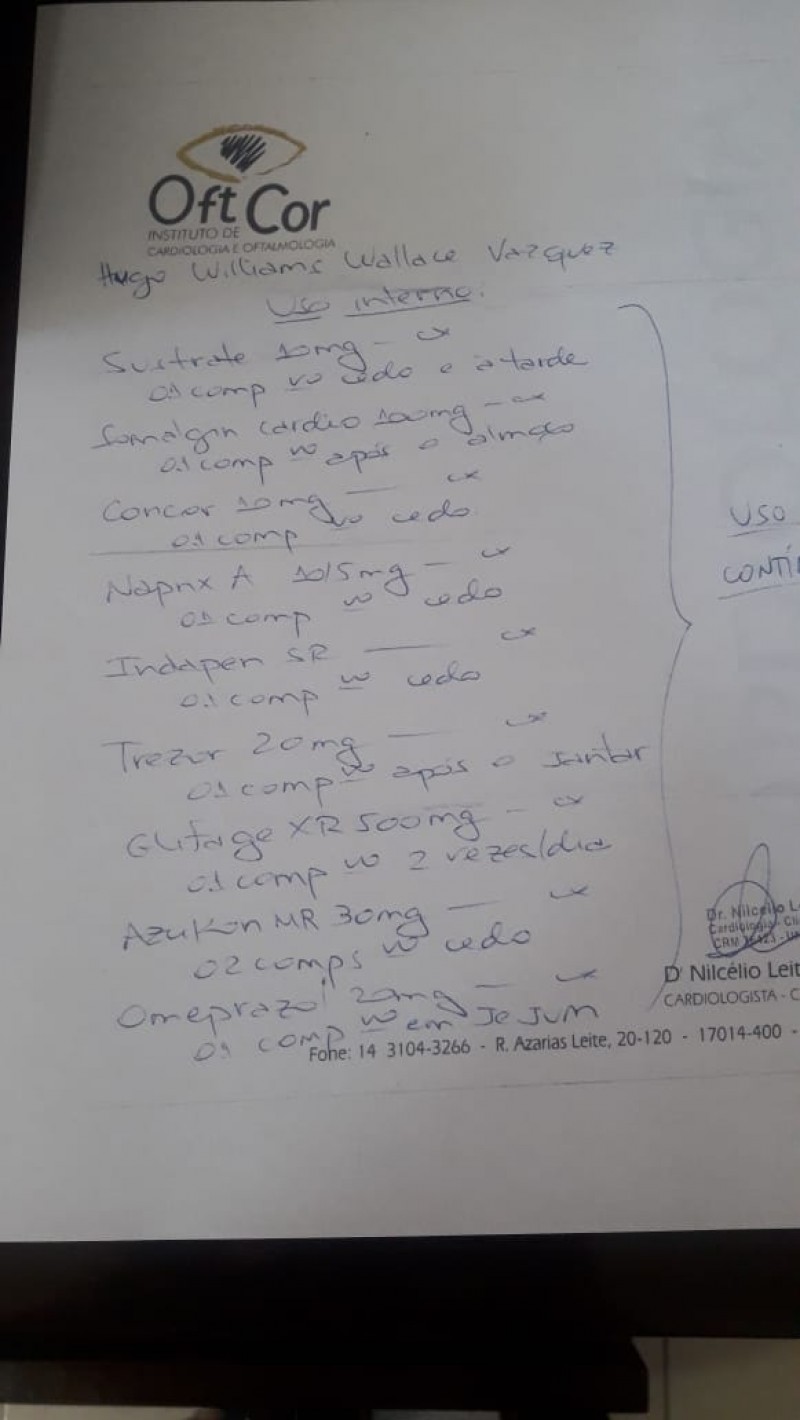 Oft Cor
INSTITUTO DE
CARDIOLOGIA E OFTALMOLOGIA
Hugo Williams Wallace Vazquez
Uso interno.
Sustrate 10mg - cx
01 comp vo cedo e à tarde
Somalgin cardio 100mg - cx
01 comp vo após o almoço
Concor 10mg — cx
01 comp vo cedo
Naprix A 10/5mg - cx
01 comp vo cedo
Indapen SR — cx
01 comp vo cedo
Trezor 20mg — cx
01 comp vo após o jantar
Glifage XR 500mg - cx
01 comp vo 2 vezes/dia
Azukon MR 30mg — cx
02 comps vo cedo
Omeprazol 20mg - cx
01 comp vo em JeJum
USO
CONTÍ
Dr. Nilcélio L
Cardiologia - Cl
CRM
Dr Nilcélio Leit
CARDIOLOGISTA - C
Fone: 14 3104-3266 - R. Azarias Leite, 20-120 - 17014-400 -